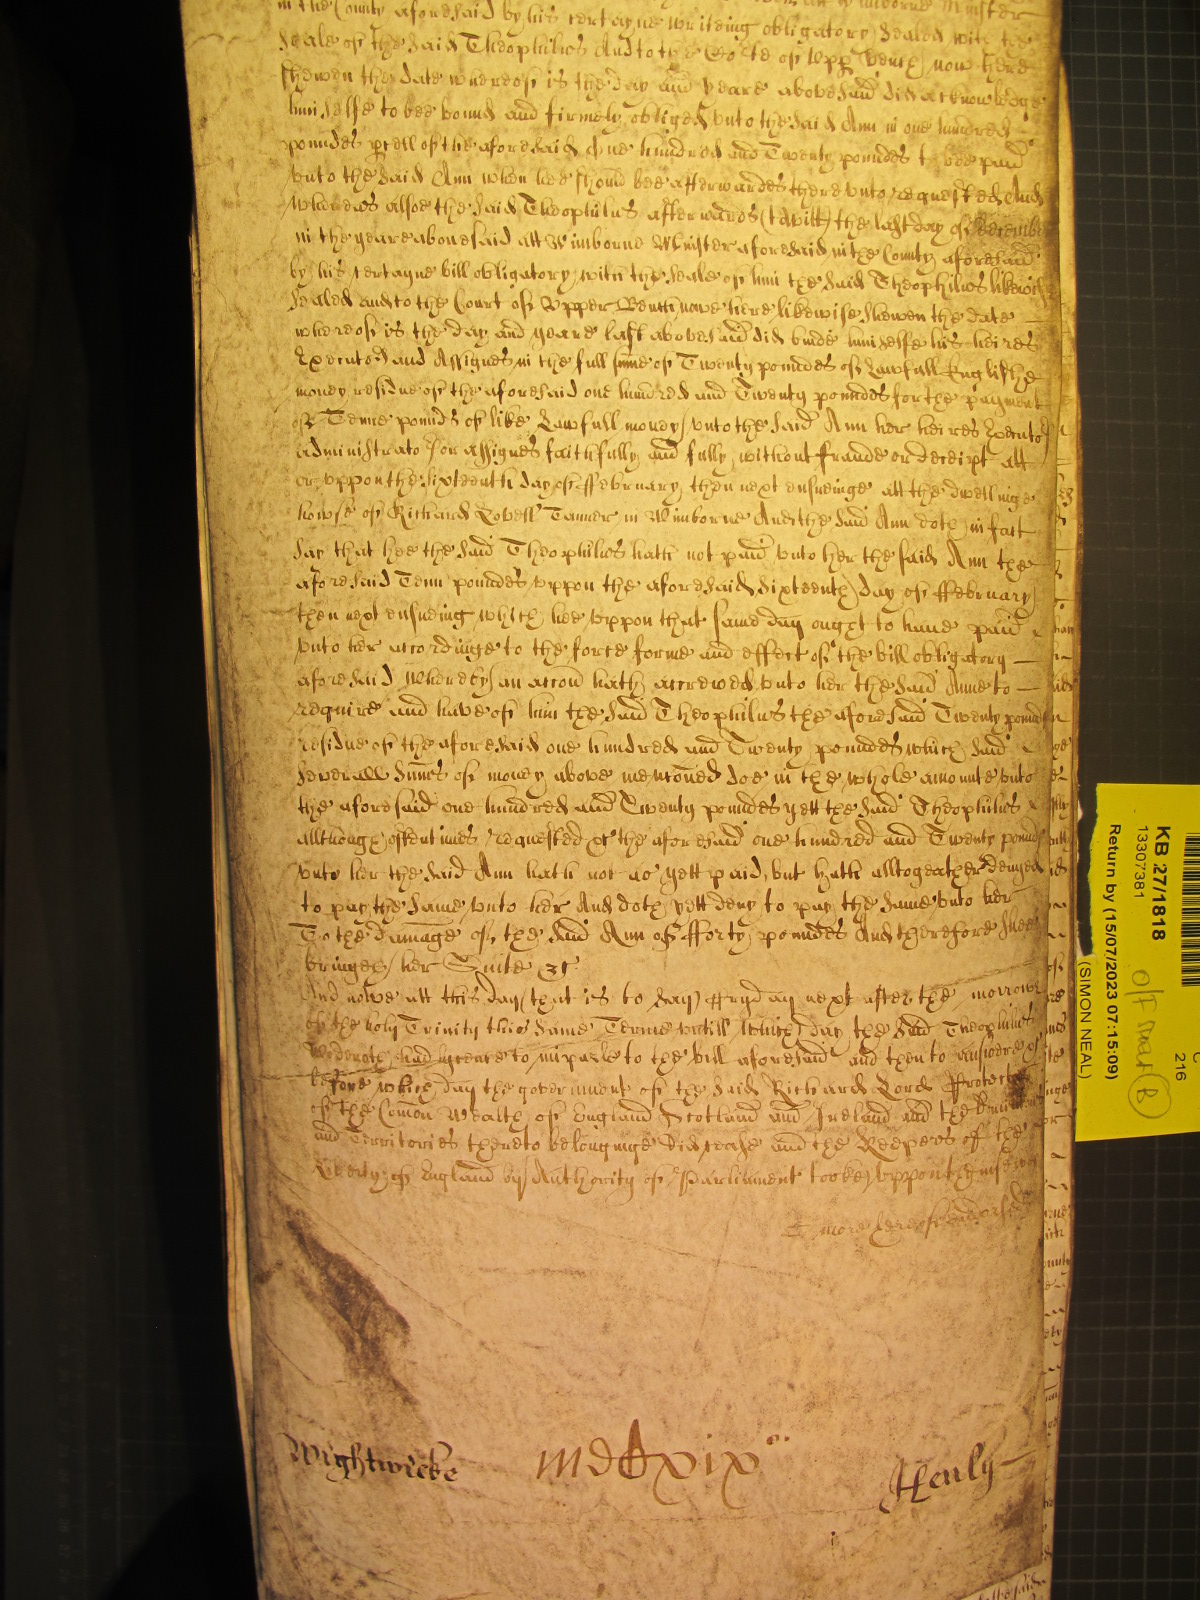 in the County aforesaid by his certayne writeing obligatory Sealed with the
Seale of the said Theophilus And to the Co'te of Upp Bench now here
shewen the date whereof is the day and yeare abovesaid did acknowledge
himselfe to bee bound and firmely obliged unto the said Ann in one hundred
poundes pcell of the aforesaid One hundred and Twenty poundes to bee paid
unto the said Ann when hee should bee afterwardes thereunto requested And
Whereas alsoe the said Theophilus afterwards (to witt) the last day of December
in the yeare abovesaid att Wimborne Minster aforesaid in the County aforesaid
by his certayne bill obligatory with the seale of him the said Theophilus likewise
Sealed and to the Court of Upper Bench nowe here likewise shewen the date
whereof is the day and yeare last abovesaid did binde himselfe his heires
Executors and Assignes in the full sume of Twenty poundes of Lawfull Englishe
money residue of the aforesaid one hundred and Twenty poundes for the payment
of Tenne pounds of like Lawfull money unto the said Ann her heires Executors
administrators or assignes faithfully and fully without fraude or deceipt att
or uppon the sixteenth day of ffebruary then next ensueinge att the dwellinge
howse of Richard Lovell Tanner in Wimborne And the said Ann doth in fact
say that hee the said Theophilus hath not paid unto her the said Ann the
aforesaid Tenn poundes uppon the aforesaid sixteenth day of ffebruary
then next ensueing which hee uppon that same day ought to have paid
unto her accordinge to the force forme and effect of the bill obligatory
aforesaid Whereby an accon hath accrewed unto her the said Anne to
require and have of him the said Theophilus the aforesaid Twenty pounds
residue of the aforesaid one hundred and Twenty poundes which said
severall sumes of money above mencioned doe in the whole amounte unto
the aforesaid one hundred and Twenty poundes yett the said Theophilus
allthough oftentimes requested &c the aforesaid one hundred and Twenty pounds
unto her the said Ann hath not as yett paid, but hath alltogeather denyed
to pay the same unto her And doth yett deny to pay the same unto her
To the damage of the said Ann of fforty poundes And therefore shee
bringes her Suite &c
And nowe att this day (that is to say) ffryday next after the morrow
of the holy Trinity this same Terme untill which day the said Theophilus
had licence to imparle to the bill aforesaid and then to answere &c
before which day the government of the said Richard Lord Protector
of the Comon Wealth of England Scotland and Ireland and the Dominions
and Territories thereto belonginge did cease and the Keepers of the
Liberty of England by Authority of Parliament tooke uppon them
more hereof endorsed
Wightwicke mdcxix Henly
KB 27/1818
13307381
Return by (15/07/2023 07:15:09)
(SIMON NEAL)
216